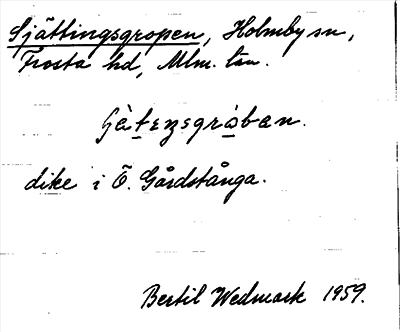 Sjättingsgropen, Holmby sn,
Frosta hd, Mlm. län.
dike i Ö. Gårdstånga.
Bertil Wedmark 1959.